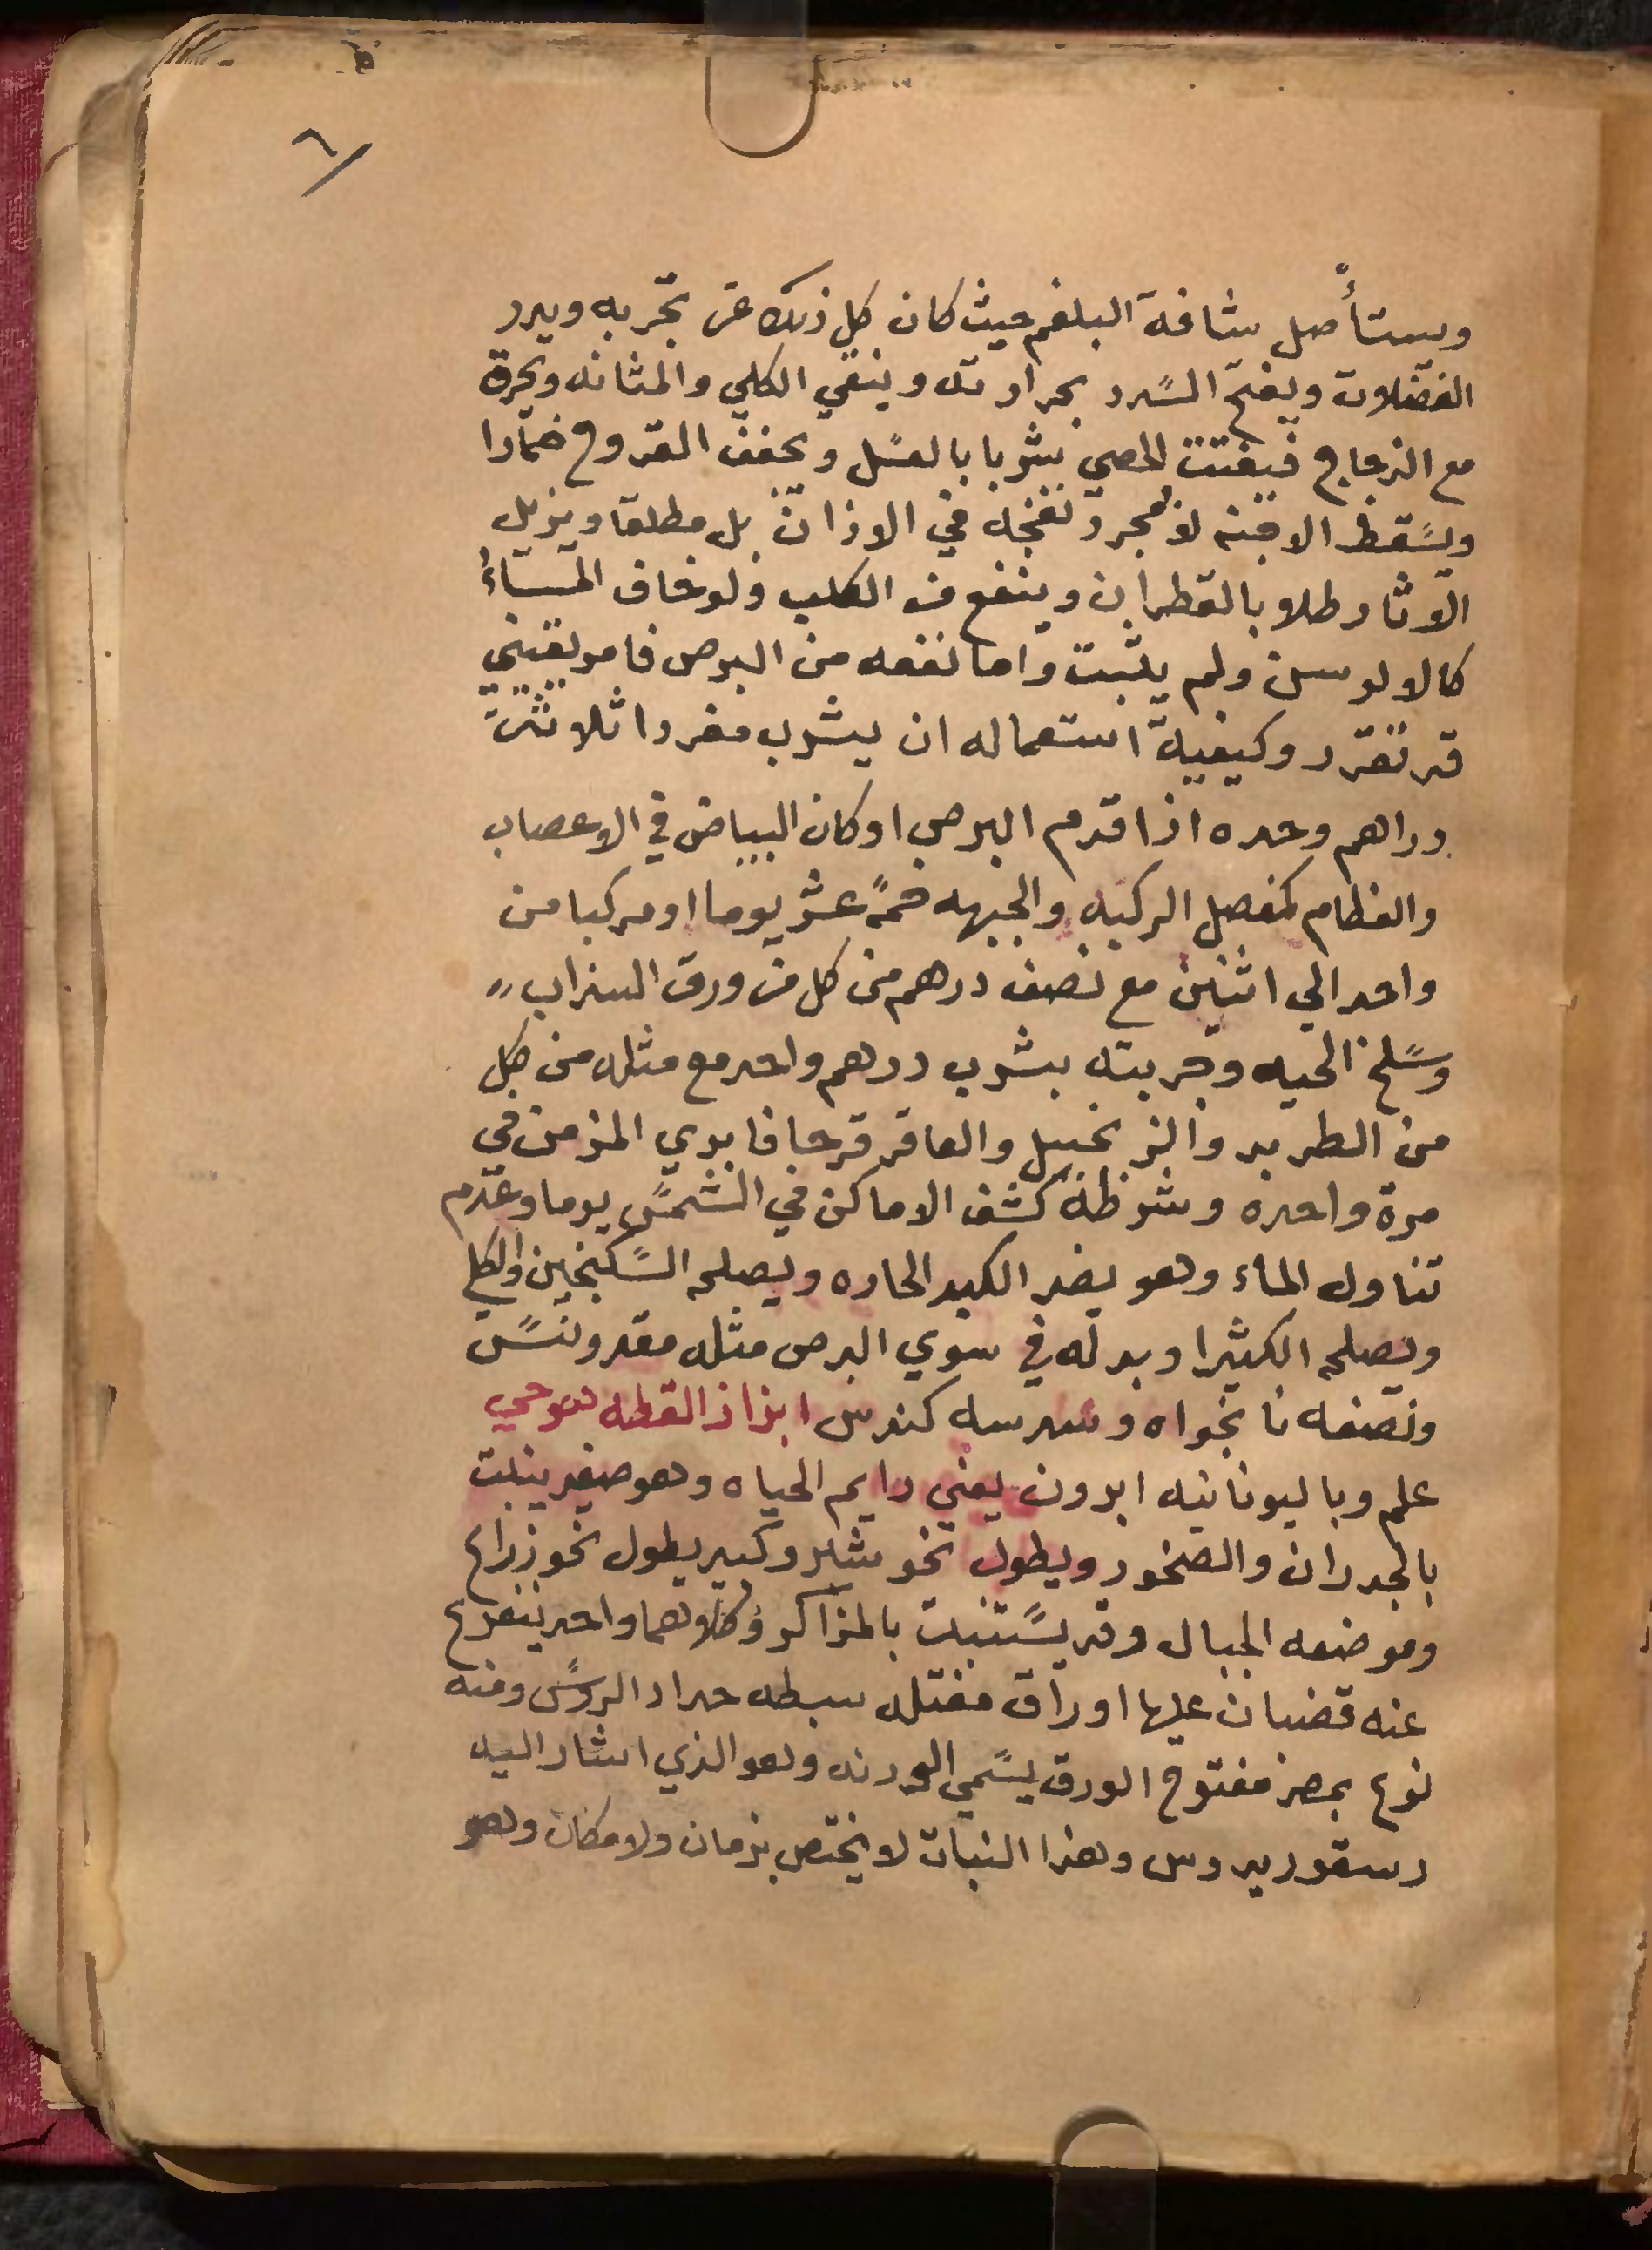 ٦
ويستأصل شافة البلغم حيث كان كل ذلك عن تجربه ويدر
الفضلات ويفتح السدد بحرارته وينقي الكلي والمثانه ويحرق
مع الزجاج فيفتت الحصي شربا بالعسل ويجفف القروح ضمادا
ويسقط الاجنه لا بمجرد نفخه في الاذان بل مطلقا ويزيل
الاثار طلا بالقطران وينفع من الكلب ولو خاف الماء
كالالوسن ولم يثبت واما نفعه من البرص فامر يقيني
قد تقرر وكيفية استعماله ان يشرب مفردا ثلاثة
دراهم وحده اذا قدم البرص او كان البياض في الاعصاب
والعظام كمفصل الركبه والجبهه خمسة عشر يوما او مركبا من
واحد الي اثنين مع نصف درهم من كل من ورق السداب
وسلخ الحيه وجربته بشرب درهم واحد مع مثله من كل
من الطربد والزنجبيل والعاقر قرحا فابري المزمن في
مرة واحده وشرطه كشف الاماكن في الشمس يوما وعدم
تناول الماء وهو يضر الكبد الحاره ويصلحه السكنجبين والكلي
ويصلحه الكثيرا وبدله في سوي البرص مثله مقدونس
ونصفه نانخواه وسدسه كندس ابزاز القطه هو حي
علم وباليونانيه ابرون يعني دايم الحياه وهو صغير ينبت
بالجدران والصخور ويطول نحو شبر وكبير يطول نحو ذراع
وموضعه الجبال وقد يستنبت بالمراكز وكلاهما واحد يتفرع
عنه قضبان عليها اوراق مفتله سبطه حداد الروس ومنه
نوع بمصر مفتوح الورق يسمي الودنه وهو الذي اشار اليه
دسقوريدوس وهذا النبات لا يختص بزمان ولا مكان وهو